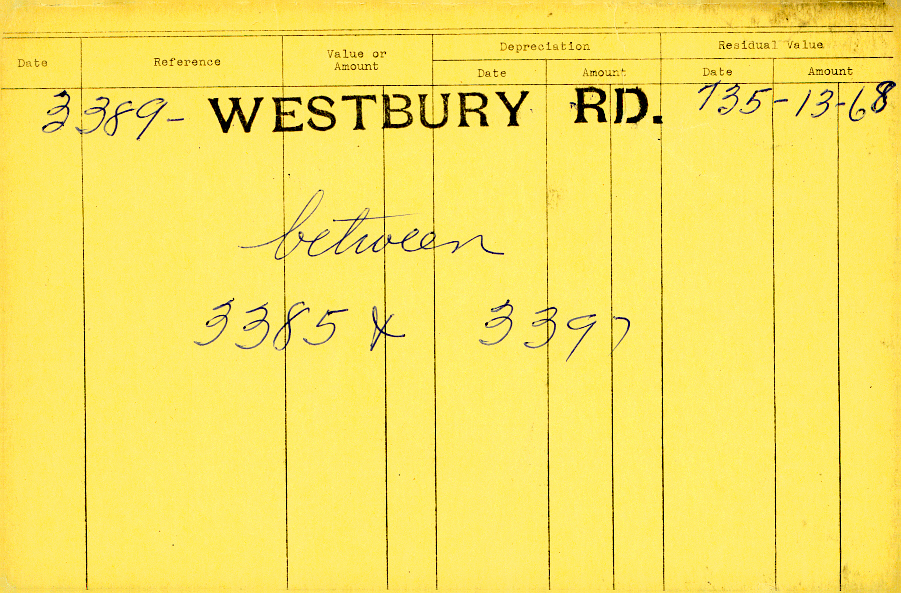 Depreciation Residual Value
Date Reference Value or Amount Date Amount Date Amount
3389- WESTBURY RD. 735-13-68
between
3385 & 3397